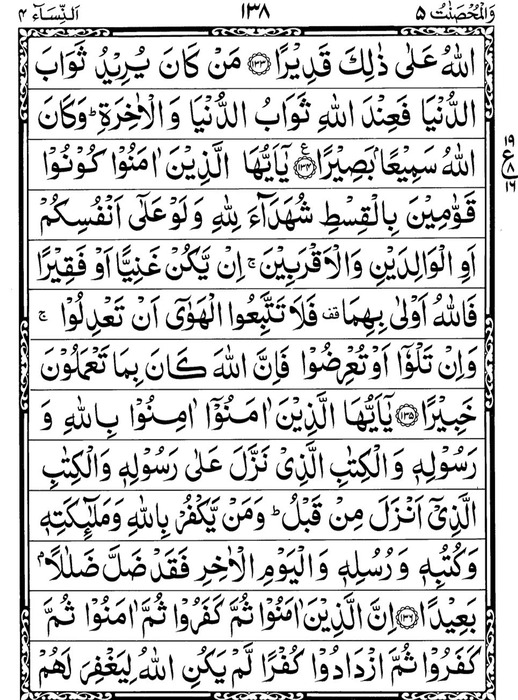 وَالْمُحْصَنٰتُ ٥ ١٣٨ اَلنِّسَآء ٤
اللّٰهُ عَلٰى ذٰلِكَ قَدِيْرًا ﴿١٣٣﴾ مَنْ كَانَ يُرِيْدُ ثَوَابَ
الدُّنْيَا فَعِنْدَ اللّٰهِ ثَوَابُ الدُّنْيَا وَالْاٰخِرَةِ ؕ وَكَانَ
اللّٰهُ سَمِيْعًاۢ بَصِيْرًا ﴿١٣٤﴾ ع يٰۤاَيُّهَا الَّذِيْنَ اٰمَنُوْا كُوْنُوْا
١٩ ع ٨ ١٦
قَوّٰمِيْنَ بِالْقِسْطِ شُهَدَآءَ لِلّٰهِ وَلَوْ عَلٰۤى اَنْفُسِكُمْ
اَوِ الْوَالِدَيْنِ وَالْاَقْرَبِيْنَ ۚ اِنْ يَّكُنْ غَنِيًّا اَوْ فَقِيْرًا
فَاللّٰهُ اَوْلٰى بِهِمَا قف فَلَا تَتَّبِعُوا الْهَوٰۤى اَنْ تَعْدِلُوْا ۚ
وَاِنْ تَلْوٗۤا اَوْ تُعْرِضُوْا فَاِنَّ اللّٰهَ كَانَ بِمَا تَعْمَلُوْنَ
خَبِيْرًا ﴿١٣٥﴾ يٰۤاَيُّهَا الَّذِيْنَ اٰمَنُوْۤا اٰمِنُوْا بِاللّٰهِ وَ
رَسُوْلِهٖ وَالْكِتٰبِ الَّذِيْ نَزَّلَ عَلٰى رَسُوْلِهٖ وَالْكِتٰبِ
الَّذِيْۤ اَنْزَلَ مِنْ قَبْلُ ؕ وَمَنْ يَّكْفُرْ بِاللّٰهِ وَمَلٰٓئِكَتِهٖ
وَكُتُبِهٖ وَرُسُلِهٖ وَالْيَوْمِ الْاٰخِرِ فَقَدْ ضَلَّ ضَلٰلًاۢ
بَعِيْدًا ﴿١٣٦﴾ اِنَّ الَّذِيْنَ اٰمَنُوْا ثُمَّ كَفَرُوْا ثُمَّ اٰمَنُوْا ثُمَّ
كَفَرُوْا ثُمَّ ازْدَادُوْا كُفْرًا لَّمْ يَكُنِ اللّٰهُ لِيَغْفِرَ لَهُمْ